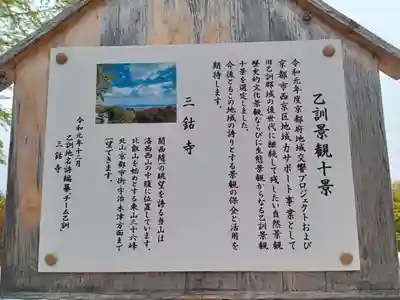 乙訓景観十景
令和元年度京都府地域交響プロジェクトおよび
京都市西京区地域力サポート事業として
旧乙訓郡域の後世に継続して残したい自然景観、
歴史的文化景観ならびに生態景観からなる乙訓景観
十景を選定しました。
今後ともこの地域の誇りとする景観の保全と活用を
期待します。
三鈷寺
関西随一の眺望を誇る当山は
洛西西山の中腹に位置しています。
比叡山を始めとする東山三十六峰
北山京都市街宇治木津方面まで
一望できます。
令和元年十二月
乙訓地名詩編纂チーム乙訓
三鈷寺